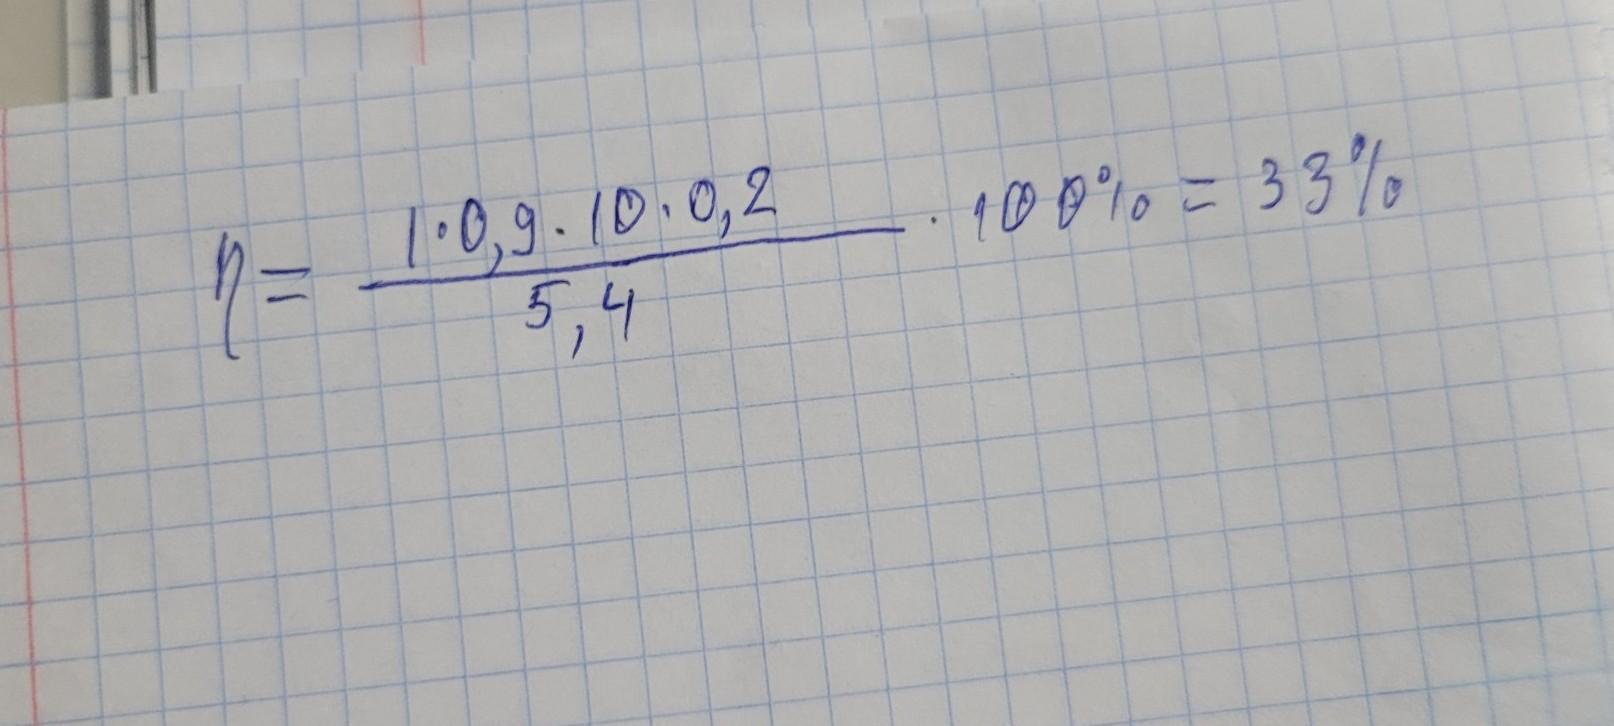 η = 1·0,9·10·0,2 / 5,4 · 100% = 33%